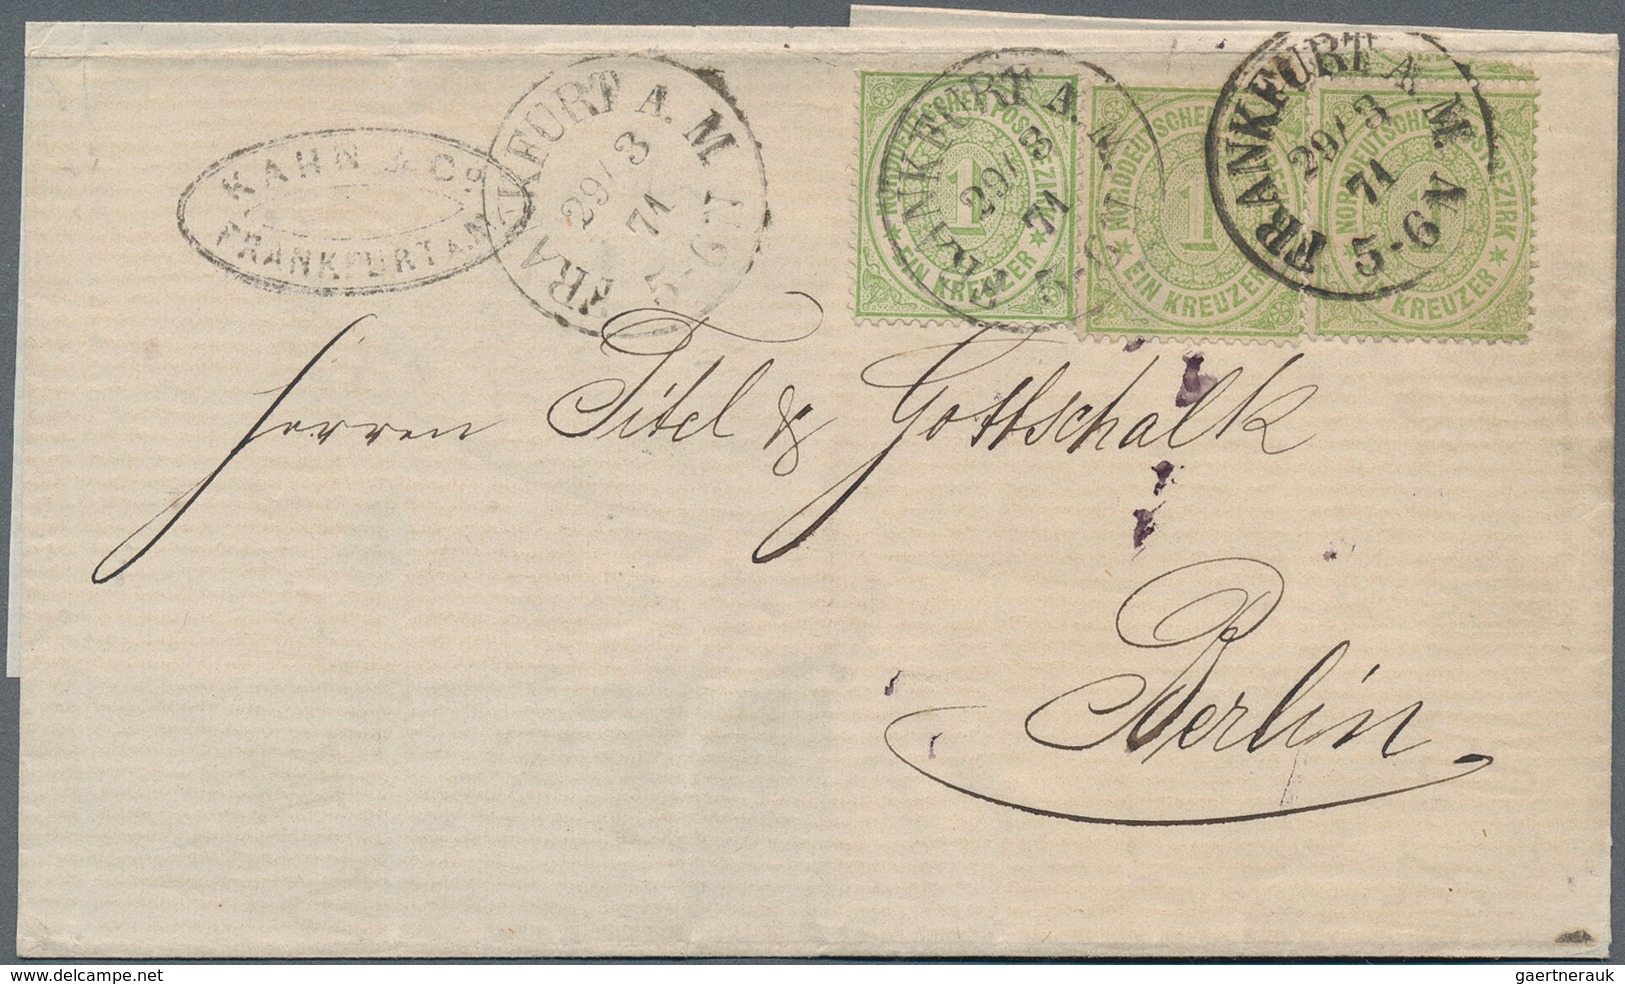 KAHN & Co.
FRANKFURT A M
FRANKFURT A. M.
29/3
71
5-6 N
NORDDEUTSCHER POSTBEZIRK
1
EIN KREUZER
FRANKFURT A. M.
29/3
71
5-6 N
NORDDEUTSCHER POSTBEZIRK
1
EIN KREUZER
NORDDEUTSCHER POSTBEZIRK
1
EIN KREUZER
FRANKFURT A. M.
29/3
71
5-6 N
Herren Titel & Gottschalk
Berlin
www.delcampe.net
gaertnerauk